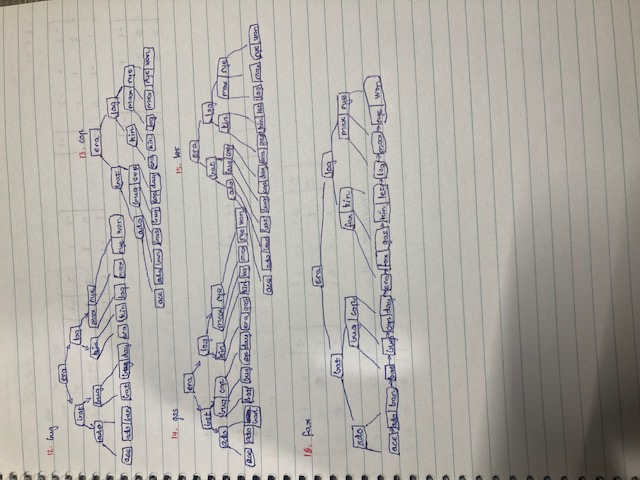 12. bug
era
bat log
ado bug kin max rye
ace ado ban bat bug day era kin log max rye won
13. cap
era
bat log
ado bug cap kin max rye
ace ado ban bat bug cap day era kin log max rye won
14. gas
era
bat log
ado bug cap kin max rye
ace ado ban bat bug cap day era gas kin log max rye won
15. let
era
bat log
ado bug cap kin max rye
ace ado ban bat bug cap day era gas kin let log max rye won
16. fax
era
bat log
ado bug cap fax kin max rye
ace ado ban bat bug cap day era fax gas kin let log max rye won